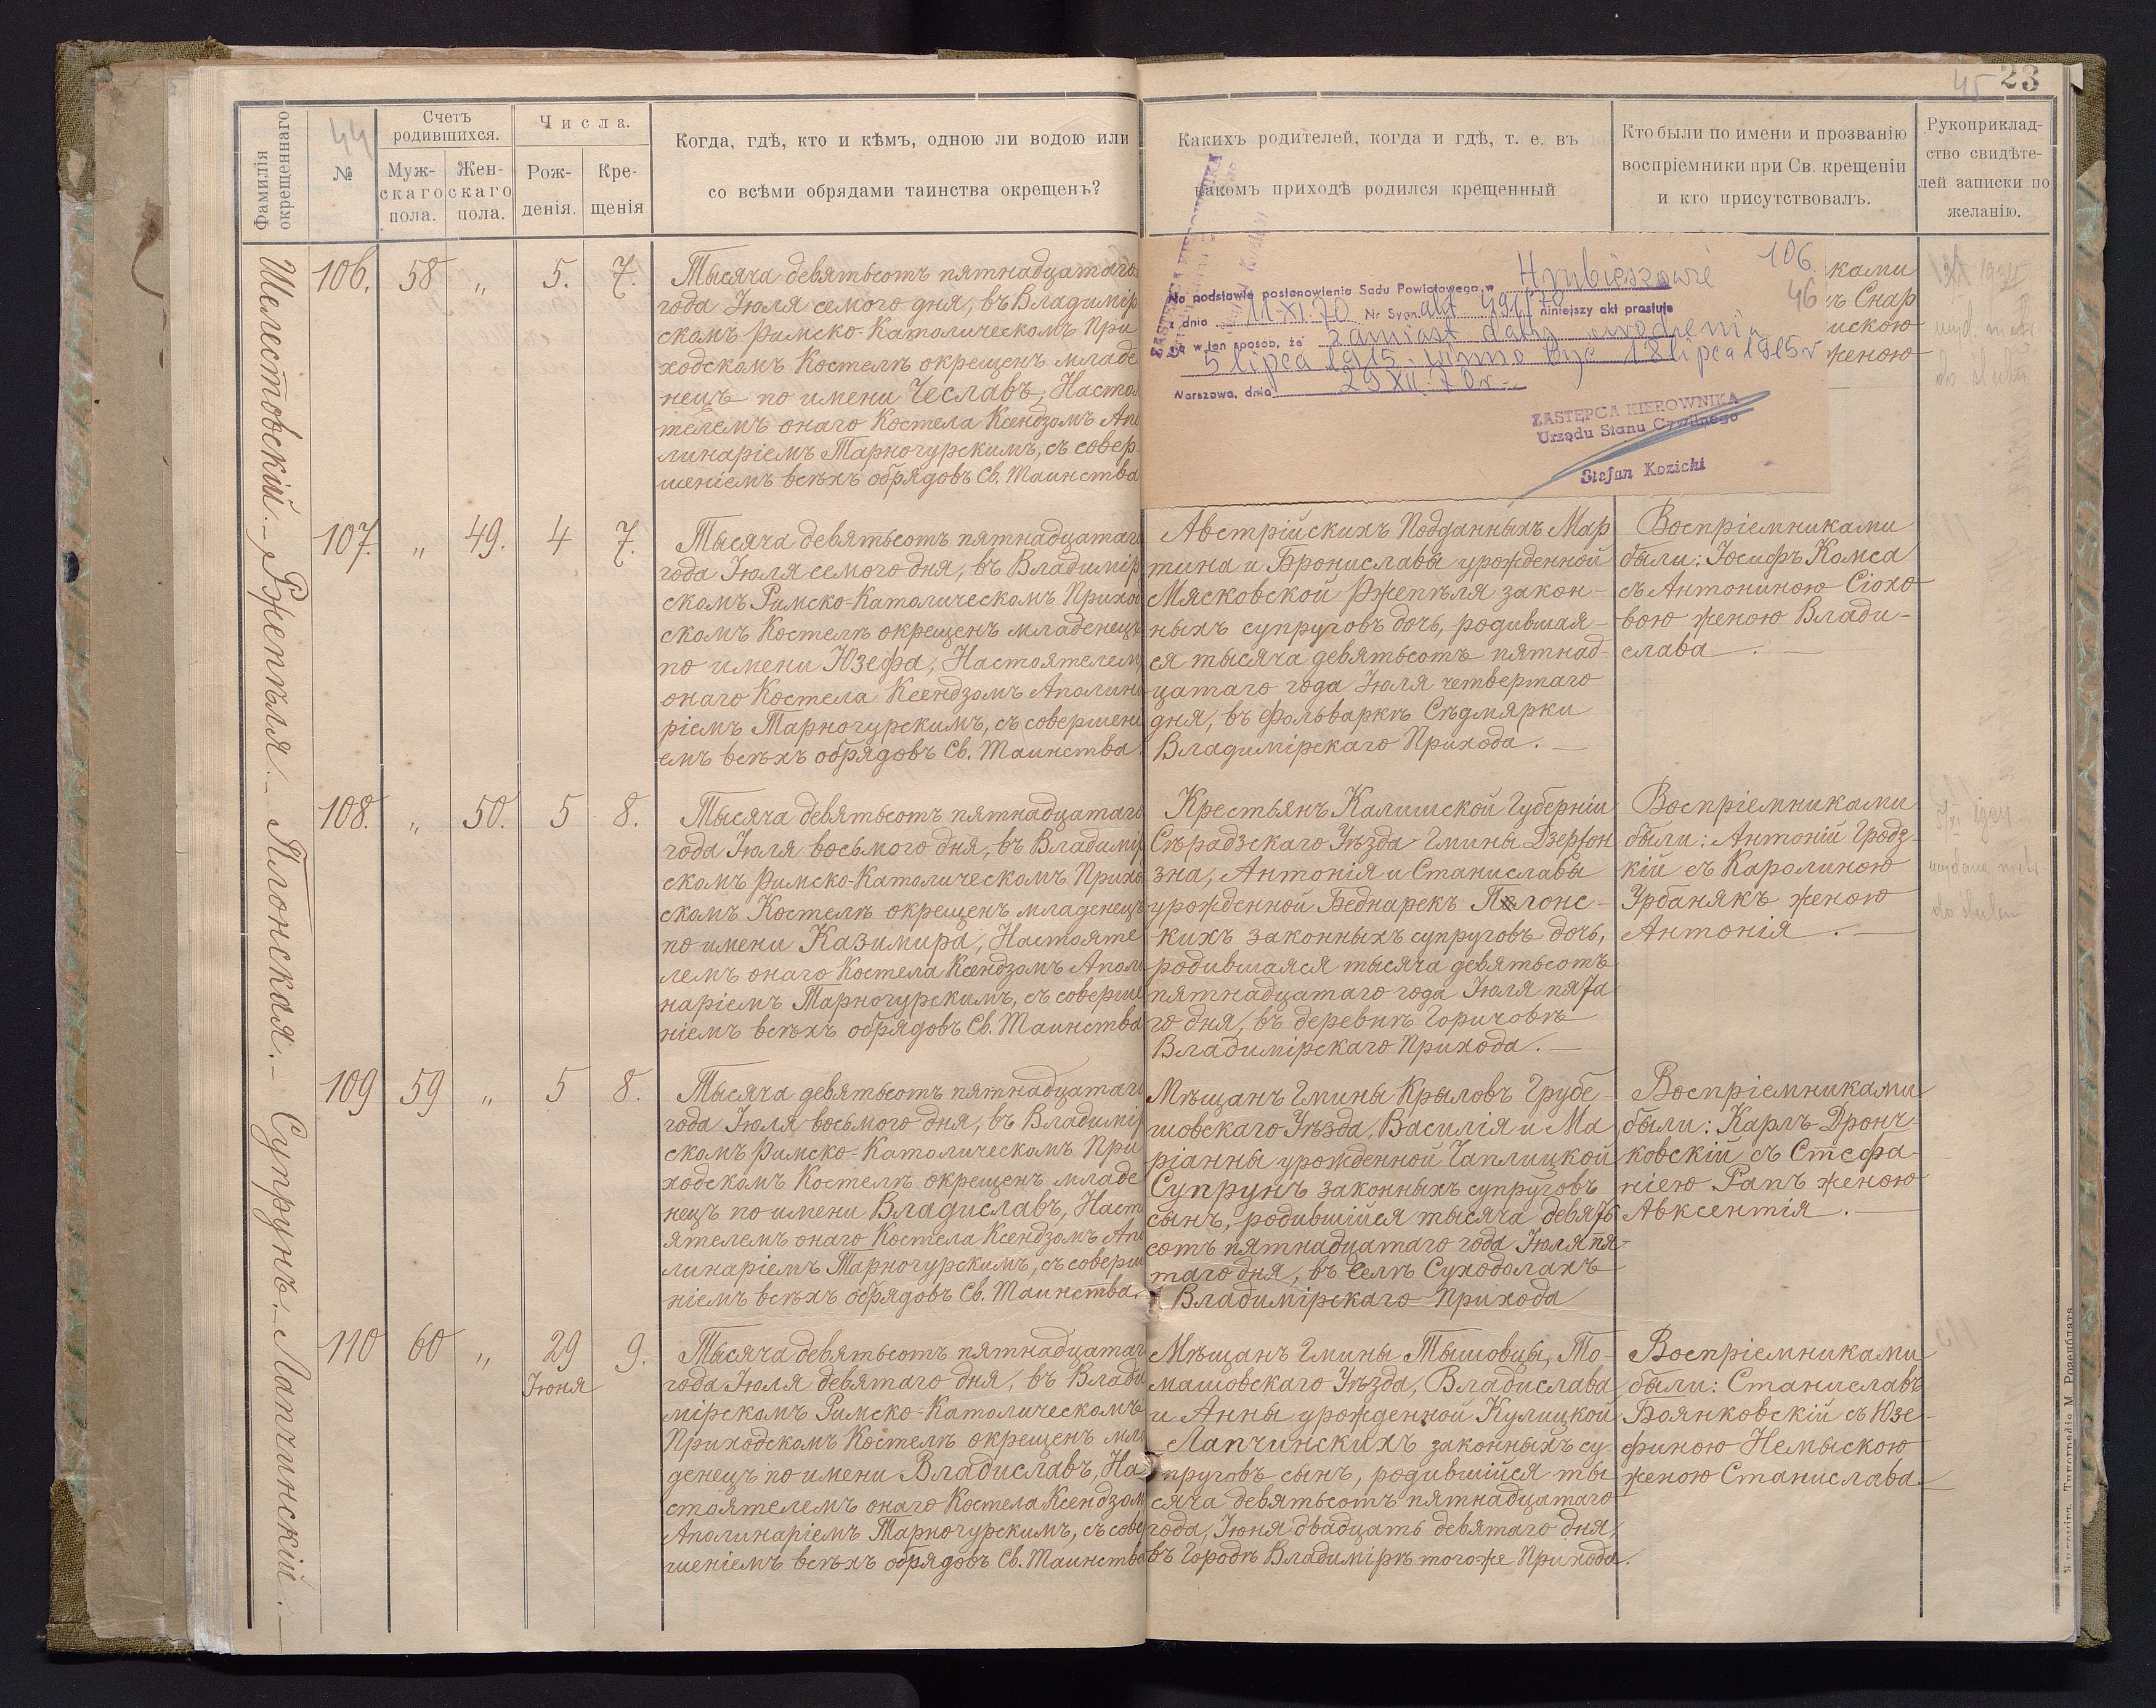 45 23
Фамилія
окрещеннаго
44
№
Счетъ
родившихся.
Муж-
скаго
пола.
Жен-
скаго
пола.
Числа.
Рож-
денія.
Кре-
щенія
Когда, гдѣ, кто и кѣмъ, одною ли водою или
со всѣми обрядами таинства окрещенъ?
Какихъ родителей, когда и гдѣ, т. е. въ
какомъ приходѣ родился крещенный
Кто были по имени и прозванію
воспріемники при Св. крещеніи
и кто присутствовалъ.
Рукоприклад-
ство свидѣте-
лей записки по
желанію.
Шелестовскій. –
106. 58 „ 5. 7.
Тысяча девятьсотъ пятнадцатаго
года Іюля семого дня, въ Владимір
скомъ Римско-Католическомъ При
ходскомъ Костелѣ окрещенъ младе
нецъ по имени Чеславъ, Насто
телемъ онаго Костела Ксендзомъ Апо
линаріемъ Тарногурскимъ, съ совер
шеніемъ всѣхъ обрядовъ Св. Таинства
Hrubieszowie 106
46
Na podstawie postanowienia Sadu Powiatowego w
z dnia 11-XI.70 Nr Sygn. niniejszy akt prostuje
się w ten sposób, że zamiast daty urodzenia
5 lipca 1915 winno być 18 lipca 1915 r
Warszawa, dnia 29 XII. 70 r.
ZASTĘPCA KIEROWNIKA
Urzędu Stanu Cywilnego
Stefan Kozicki
ZASTĘPCA KIEROWNIKA
ками
ъ Снар
скою
женою
Ржепѣля. –
107. „ 49. 4 7.
Тысяча девятьсотъ пятнадцатаг
года Іюля семого дня, въ Владимір
скомъ Римско-Католическомъ Приход
скомъ Костелѣ окрещенъ младенецъ
по имени Юзефа, Настоятелем
онаго Костела Ксендзомъ Аполина
ріемъ Тарногурскимъ, съ совершені
емъ всѣхъ обрядовъ Св. Таинства.
Австрійскихъ Подданныхъ Мар
тина и Брониславы урожденной
Мясковской Ржепѣля закон-
ныхъ супруговъ дочь, родившая-
ся тысяча девятьсотъ пятнад-
цатаго года Іюля четвертаго
дня, въ фольваркѣ Сѣдмярки
Владимірскаго Прихода. –
Воспріемниками
были: Іосифъ Комса
съ Антониною Сіохо
вою женою Влади-
слава. –
Плонская. –
108. „ 50. 5 8.
Тысяча девятьсотъ пятнадцатаго
года Іюля восьмого дня, въ Владимір
скомъ Римско-Католическомъ Прихо
скомъ Костелѣ окрещенъ младенецъ
по имени Казимира, Настояте
лемъ онаго Костела Ксендзомъ Апол
наріемъ Тарногурскимъ, съ соверше
ніемъ всѣхъ обрядовъ Св. Таинства
Крестьянъ Калишской Губерніи
Сѣрадзскаго Уѣзда Гмины Дзерфон
зна, Антонія и Станиславы
урожденной Беднарекъ Плонс-
кихъ законныхъ супруговъ дочь,
родившаяся тысяча девятьсотъ
пятнадцатаго года Іюля пята
го дня, въ деревнѣ Горичовѣ
Владимірскаго Прихода. –
Воспріемниками
были: Антоній Гродз-
кій съ Каролиною
Урбанякъ женою
Антонія. –
Супрунъ. –
109 59 „ 5 8.
Тысяча девятьсотъ пятнадцатаго
года Іюля восьмого дня, въ Владимір
скомъ Римско-Католическомъ При
ходскомъ Костелѣ окрещенъ младе
нецъ по имени Владиславъ, Наст
ятелемъ онаго Костела Ксендзомъ Апо
линаріемъ Тарногурскимъ, съ соверш
ніемъ всѣхъ обрядовъ Св. Таинства.
Мѣщанъ Гмины Крыловъ Грубе-
шовскаго Уѣзда, Василія и Ма
ріанны урожденной Чаплицкой
Супрунъ законныхъ супруговъ
сынъ, родившійся тысяча девять
сотъ пятнадцатаго года Іюля пя-
таго дня, въ Селѣ Суходолахъ
Владимірскаго Прихода
Воспріемниками
были: Карлъ Дронч-
ковскій съ Стефа-
ніею Рапъ женою
Авксентія. –
Лапчинскій. –
110 60 „ 29 9.
Іюня
Тысяча девятьсотъ пятнадцатаг
года Іюля девятаго дня, въ Влади
мірскомъ Римско-Католическомъ
Приходскомъ Костелѣ окрещенъ мла
денецъ по имени Владиславъ, На
стоятелемъ онаго Костела Ксендзом
Аполинаріемъ Тарногурскимъ, съ сове
шеніемъ всѣхъ обрядовъ Св. Таинства
Мѣщанъ Гмины Тышовцы, То-
машовскаго Уѣзда, Владислава
и Анны урожденной Кулицкой
Лапчинскихъ законныхъ су-
пруговъ сынъ, родившійся ты
сяча девятьсотъ пятнадцатаго
года, Іюня двадцать девятаго дня,
въ Городѣ Владимірѣ тогоже Прихода.
Воспріемниками
были: Станиславъ
Боянковскій съ Юзе-
финою Немыскою
женою Станислава.
Типографія М. Розенблата